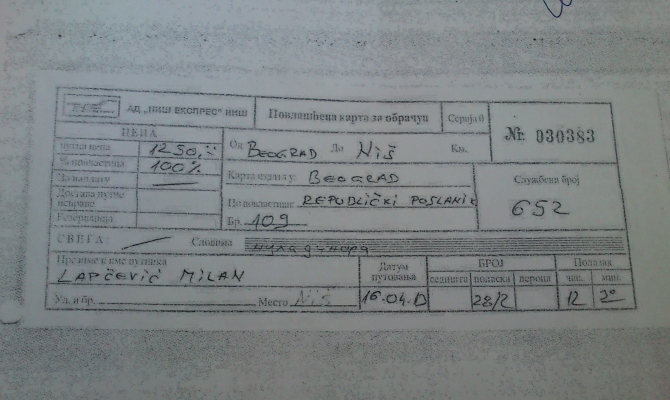 АД „НИШ ЕКСПРЕС" НИШ
Повлашћена карта за обрачун
Серија 0
№ 030383
ЦЕНА
пуна цена 1250,=
% повластица 100%
За наплату
Достава путне исправе
Резервација
СВЕГА: Словима нула динара
Од BEOGRAD До NIŠ Км.
Карта издата у: BEOGRAD
По повластици: REPUBLIČKI POSLANIK
Бр. 109
Службени број
652
Презиме и име путника
LAPČEVIĆ MILAN
Ул. и бр. Место NIŠ
Датум путовања
16.04.13
БРОЈ
седишта поласка перона
28/2
Полазак
час. мин.
12 30